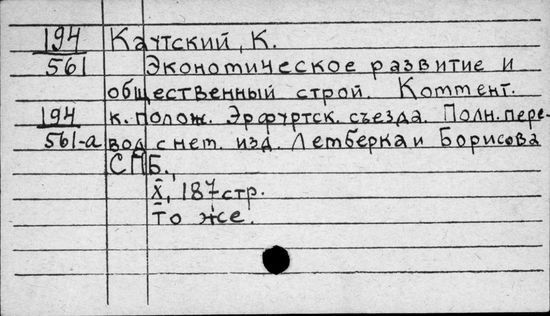 194 Каутский, К.
561 Экономическое развитие и
общественный строй. Коммент.
194 к. полож. Эрфуртск. съезда. Полн. пере-
561-а вод с нем. изд. Лемберка и Борисова
СПБ.,
X, 187 стр.
То же.